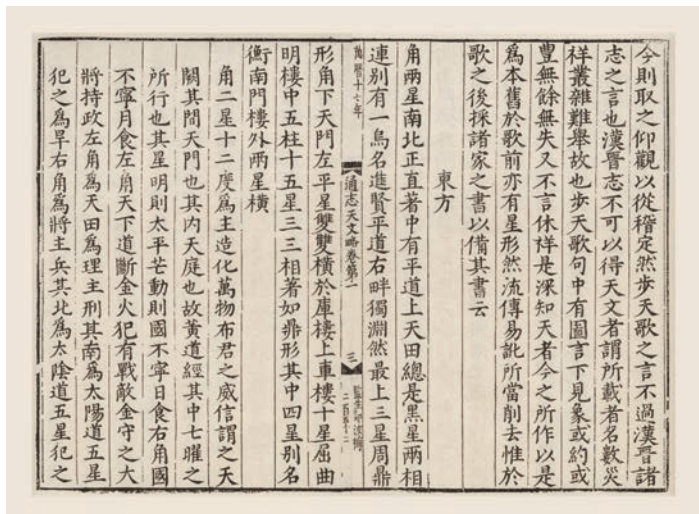 今則取之仰觀以從稽定然步天歌之言不過漢晉諸
志之言也漢晉志不可以得天文者謂所載者名數災
祥叢雜難舉故也步天歌句中有圖言下見象或約或
豐無餘無失又不言休祥是深知天者今之所作以是
爲本舊於歌前亦有星形然流傳易訛所當削去惟於
歌之後採諸家之書以備其書云
東方
角兩星南北正直著中有平道上天田總是黑星兩相
連別有一烏名進賢平道右畔獨淵然最上三星周鼎
萬曆十七年
通志天文略卷第一
三
形角下天門左平星雙雙橫於庫樓上車樓十星屈曲
明樓中五柱十五星三三相著如鼎形其中四星別名
衡南門樓外兩星橫
角二星十二度爲主造化萬物布君之威信謂之天
闕其間天門也其內天庭也故黄道經其中七曜之
所行也其星明則太平芒動則國不寧日食右角國
不寧月食左角天下道斷金火犯有戰敵金守之大
將持政左角爲天田爲理主刑其南爲太陽道五星
犯之爲旱右角爲將主兵其北爲太陰道五星犯之